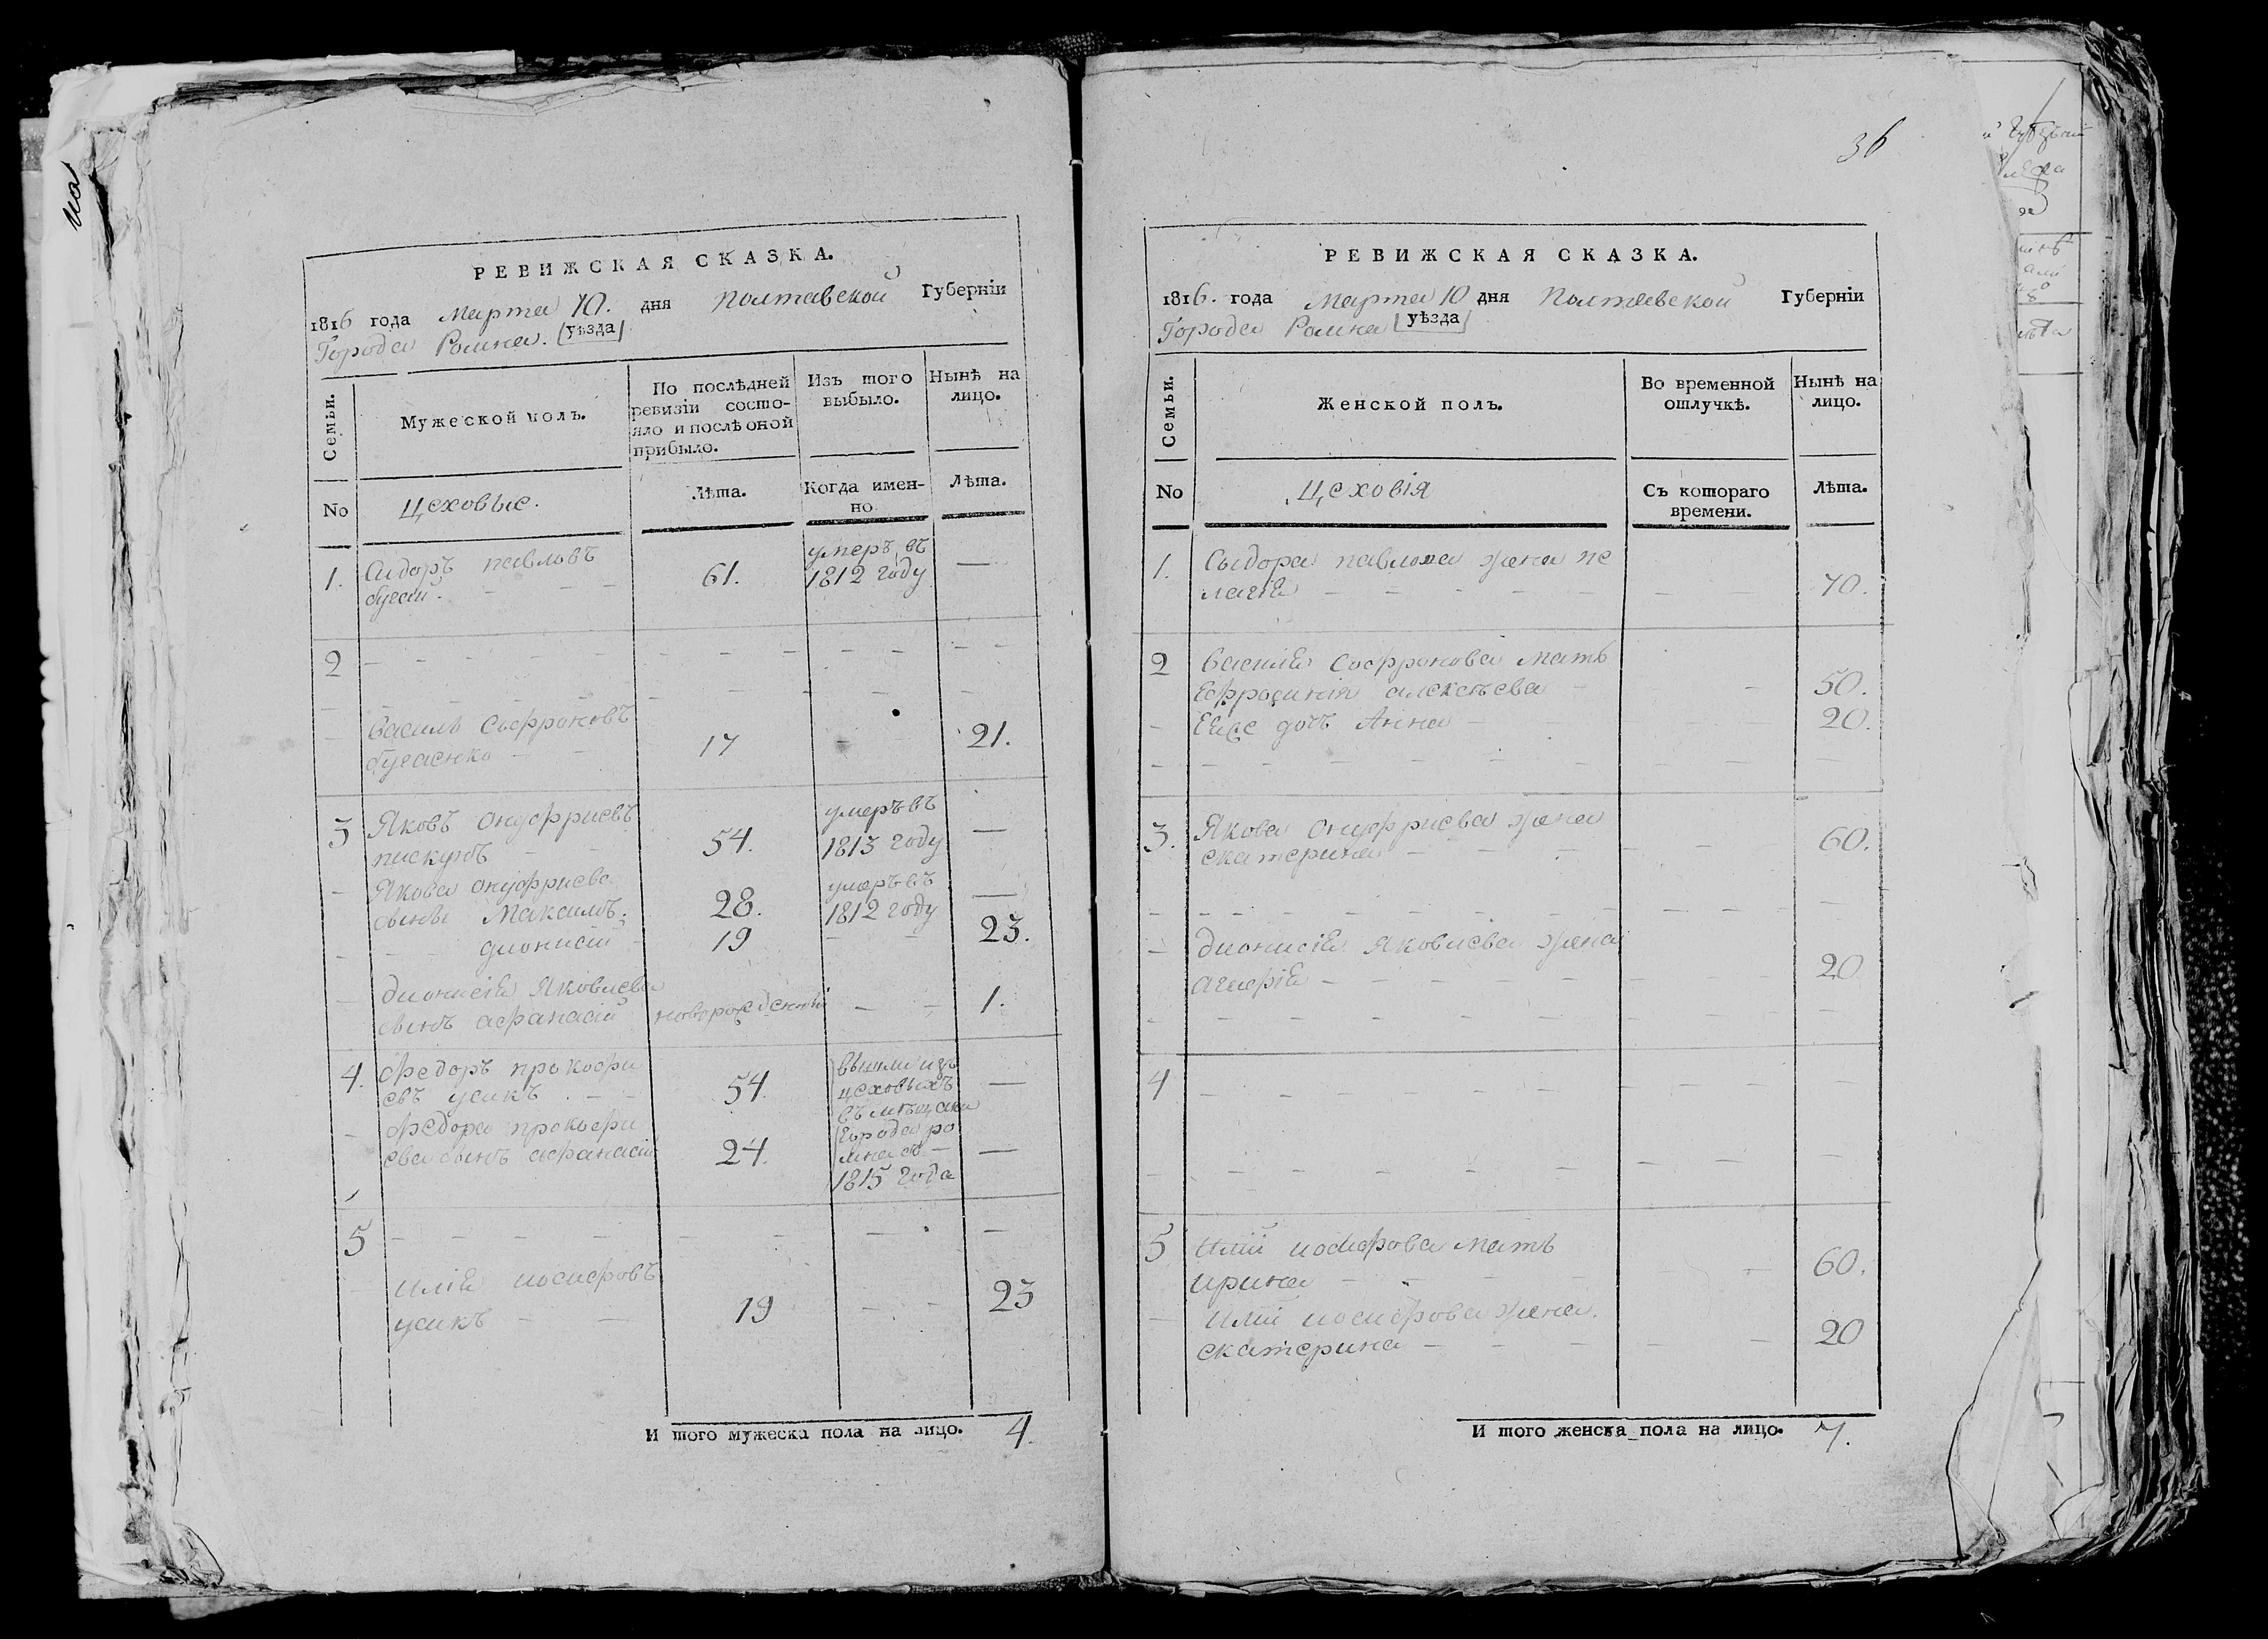 на
РЕВИЖСКАЯ СКАЗКА.
1816 года Марта 10. дня Полтавской Губерніи
Города Ромна. [уѣзда]
Семьи.
Мужеской полъ.
По послѣдней ревизіи состояло и послѣ оной прибыло.
Изъ того выбыло.
Нынѣ на лицо.
No
Цеховые.
Лѣта.
Когда именно
Лѣта.
1. Сидоръ павловъ
61.
умеръ въ
1812 году —
2
Василь Софроновъ
бугаенко
17
21.
3 Яковъ Онуфриевъ
пискунъ
54.
умеръ въ
1813 году —
Якова онуфриева
сынъ Максимъ
28.
умеръ въ
1812 году —
дионисий 19 23.
дионисія Яковлева
сынъ афанасий новорожденный 1.
4. Федоръ прокофи
евъ усикъ
54
Федора прокофи
ева сынъ афанасий
24.
вышли изъ
цеховыхъ
въ мещани
города ро
мна въ
1815 года
5
илія иосифовъ
усикъ
19
23
И того мужеска пола на лицо. 4.
36
РЕВИЖСКАЯ СКАЗКА.
1816. года Марта 10 дня Полтавской Губерніи
Города Ромна [уѣзда]
Семьи.
Женской полъ.
Во временной отлучкѣ.
Нынѣ на лицо.
No
Цеховія
Съ котораго времени.
Лѣта.
1. Сыдора павлова жена пе
лагія 70.
2 Василія Софронова мать
Ефросинія алексѣева 50.
Ейже дочъ Анна 20.
3. Якова Онуфриева жена
екатерина 60.
дионисія Яковлева жена
20
4
5 Илии иосифова мать
ирина 60.
Илии иосифова жена
екатерина 20
И того женска пола на лицо. 7.